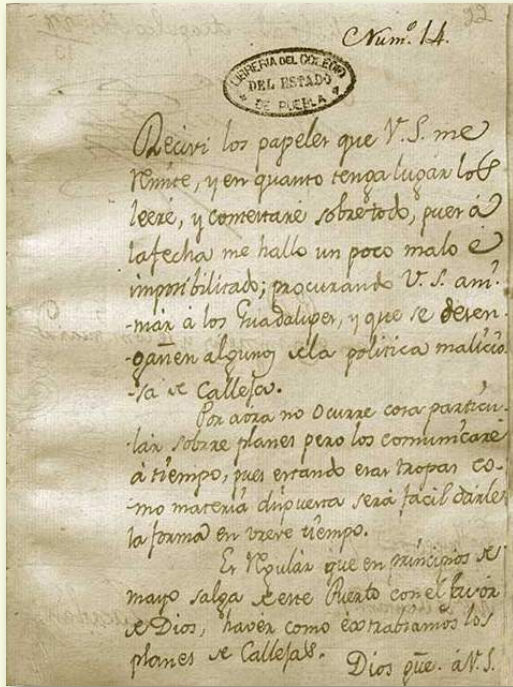 22
Num.º 14.
LIBRERIA DEL COLEGIO
DEL ESTADO
DE PUEBLA
Recivi los papeles que V.S. me
remite, y en quanto tenga lugár los
leeré, y contextaré sobre todo, pues á
la fecha me hallo un poco malo é
imposibilitado; procurando V.S. ani-
-mar á los Guadalupes, y que se desen-
-gañen algunos de la politica malicio
-sa de Calleja.
Por aora no ocurre cosa particu-
-lar sobrre planes pero los comunicaré
á tiempo, pues estando esas tropas co-
-mo materia dispuesta será fácil darles
la forma en vreve tiempo.
Es regulár que en principios de
mayo salga de este Puerto con el favor
de Dios, havér como extrabiamos los
planes de Callejas.
Dios gũe. á V.S.